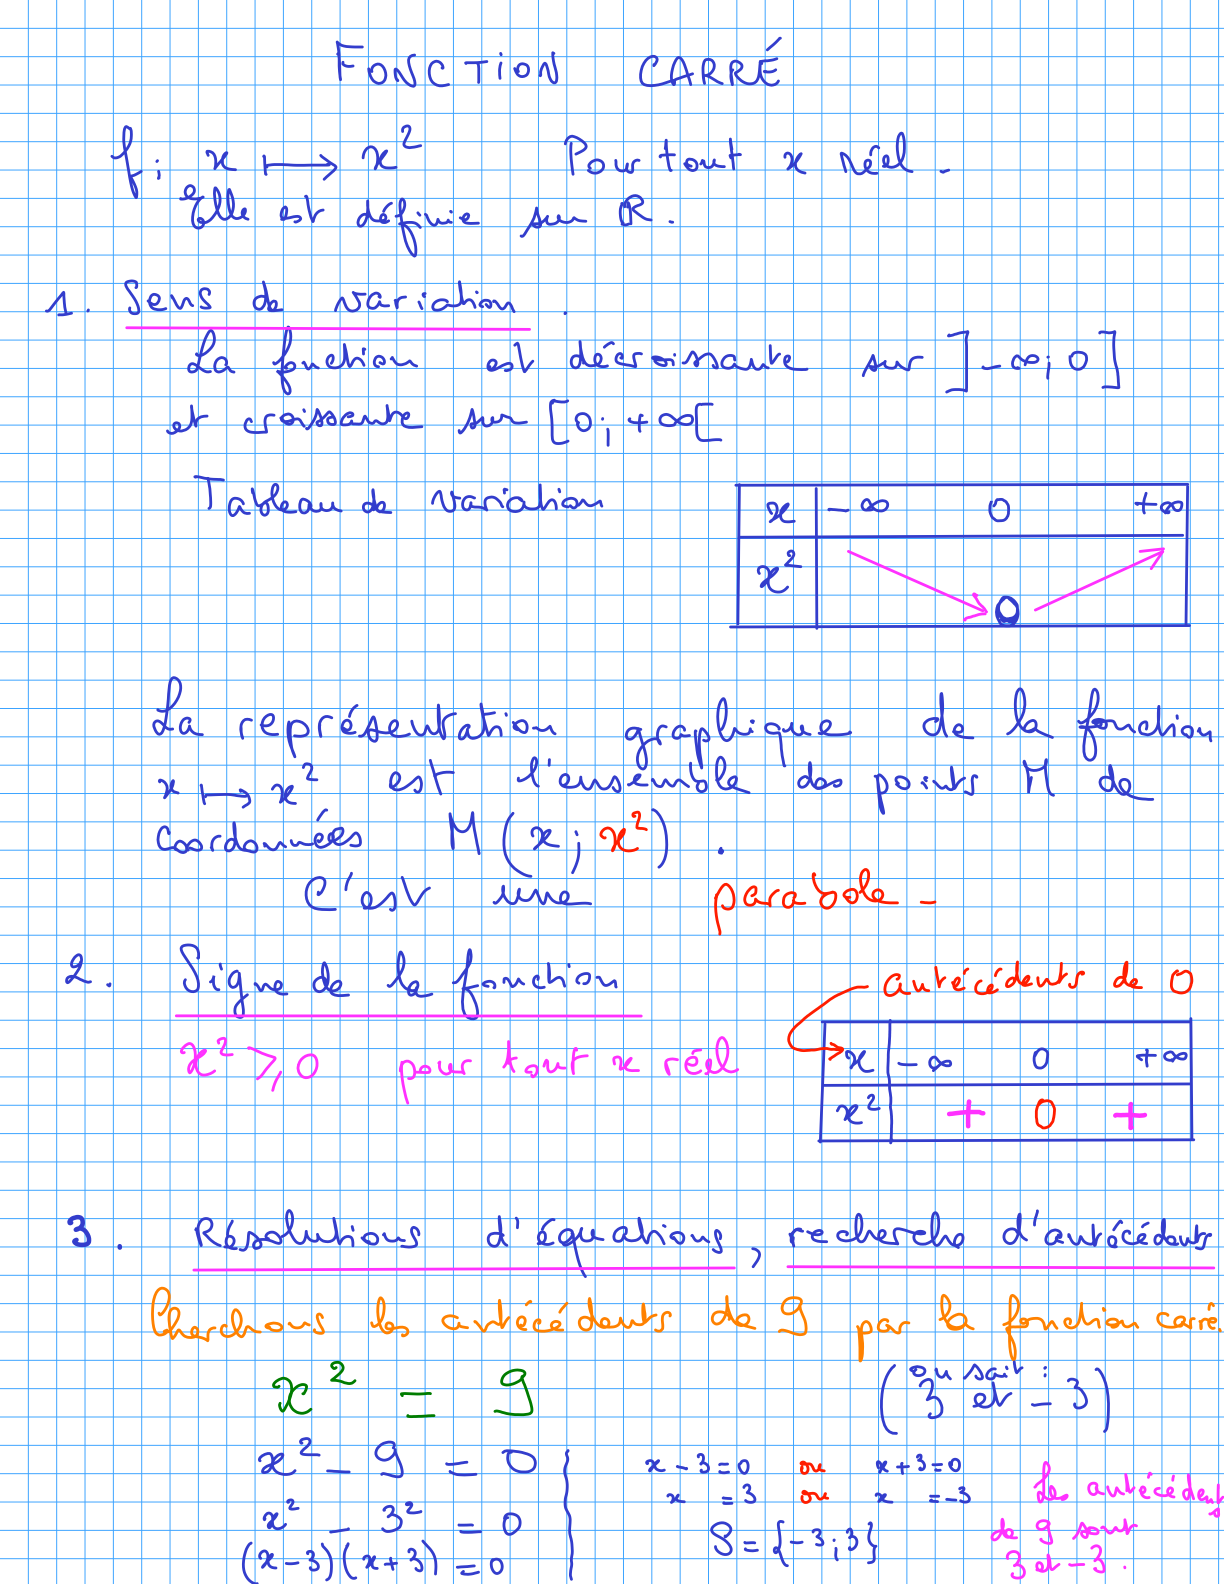 FONCTION CARRÉ
f: x ⟼ x² Pour tout x réel.
Elle est définie sur R.
1. Sens de variation.
La fonction est décroissante sur ]-∞; 0]
et croissante sur [0; +∞[
Tableau de variation
x -∞ 0 +∞
x² 0
La représentation graphique de la fonction
x ⟼ x² est l'ensemble des points M de
coordonnées M(x; x²).
C'est une parabole.
2. Signe de la fonction
antécédents de 0
x² ⩾ 0 pour tout x réel
x -∞ 0 +∞
x² + 0 +
3. Résolutions d'équations, recherche d'antécédents
Cherchons les antécédents de 9 par la fonction carré.
x² = 9
(on sait :
3 et -3)
x² - 9 = 0
x² - 3² = 0
(x-3)(x+3) = 0
x - 3 = 0 ou x + 3 = 0
x = 3 ou x = -3
S = {-3; 3}
Les antécédents
de 9 sont
3 et -3.